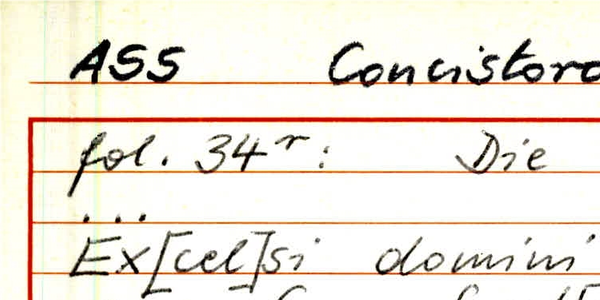 ASS Concistoro
fol. 34r: Die
...
Ex[cel]si domini